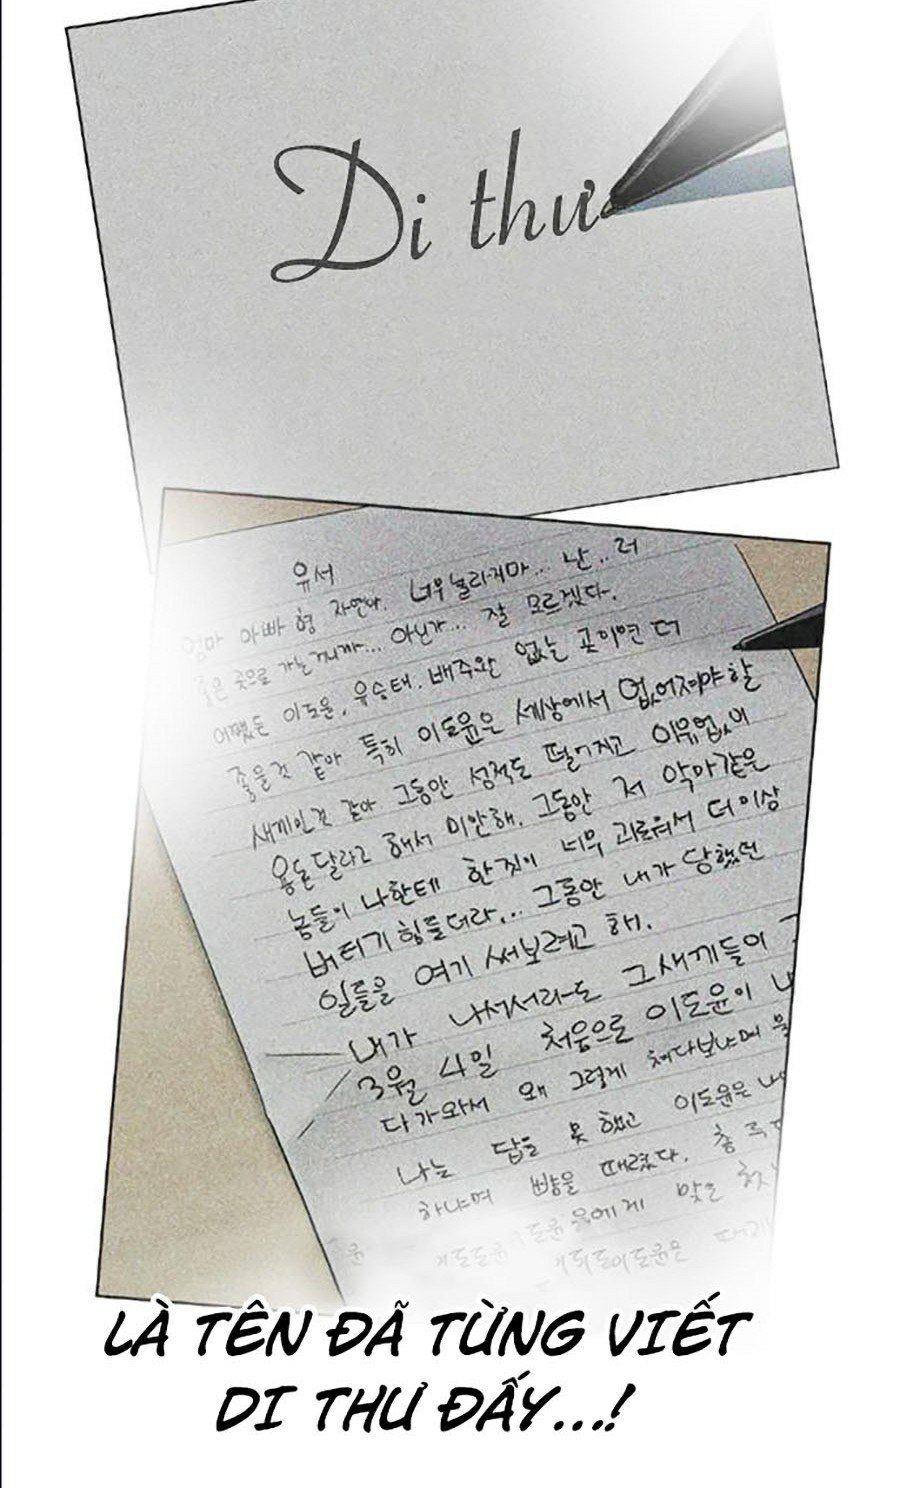 Di thư
유서
엄마 아빠 형 자연아. 너무 놀라지마... 난.. 더
좋은 곳으로 가는거니까... 아닌가... 잘 모르겠다.
어쨌든 이도윤, 유승태, 배주완 없는 곳이면 더
좋을것 같아 특히 이도윤은 세상에서 없어져야할
새끼인것 같아 그동안 성적도 떨어지고 이유없이
용돈달라고 해서 미안해. 그동안 저 악마같은
놈들이 나한테 한짓이 너무 괴로워서 더이상
버티기 힘들더라... 그동안 내가 당했던
일들을 여기 써보려고 해.
내가 나서서라도 그새끼들이
3월 4일 처음으로 이도윤이
다가와서 왜 그렇게 쳐다보냐며
나는 답을 못했고 이도윤은
하냐며 뺨을 때렸다.
맞은
LÀ TÊN ĐÃ TỪNG VIẾT
DI THƯ ĐẤY...!